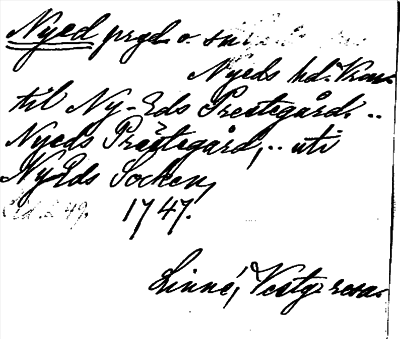 Nyed prgd. o. sn
Nyeds hd. Värml.
till Ny-Eds Prestegård. ..
Nyeds Prästegård, .. uti
NyEds Socken,
1747.
Linné, Vestg. resa.